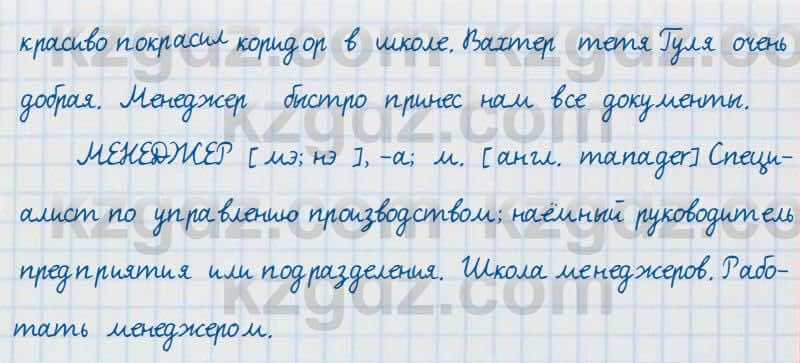 красиво покрасил коридор в школе. Вахтер тетя Гуля очень
добрая. Менеджер быстро принес нам все документы.
МЕНЕДЖЕР [мэ; нэ], -а; м. [англ. manager] Специ-
алист по управлению производством; наёмный руководитель
предприятия или подразделения. Школа менеджеров. Рабо-
тать менеджером.
kzgdz.com
kzgdz.com
kzgdz.com
kzgdz.com